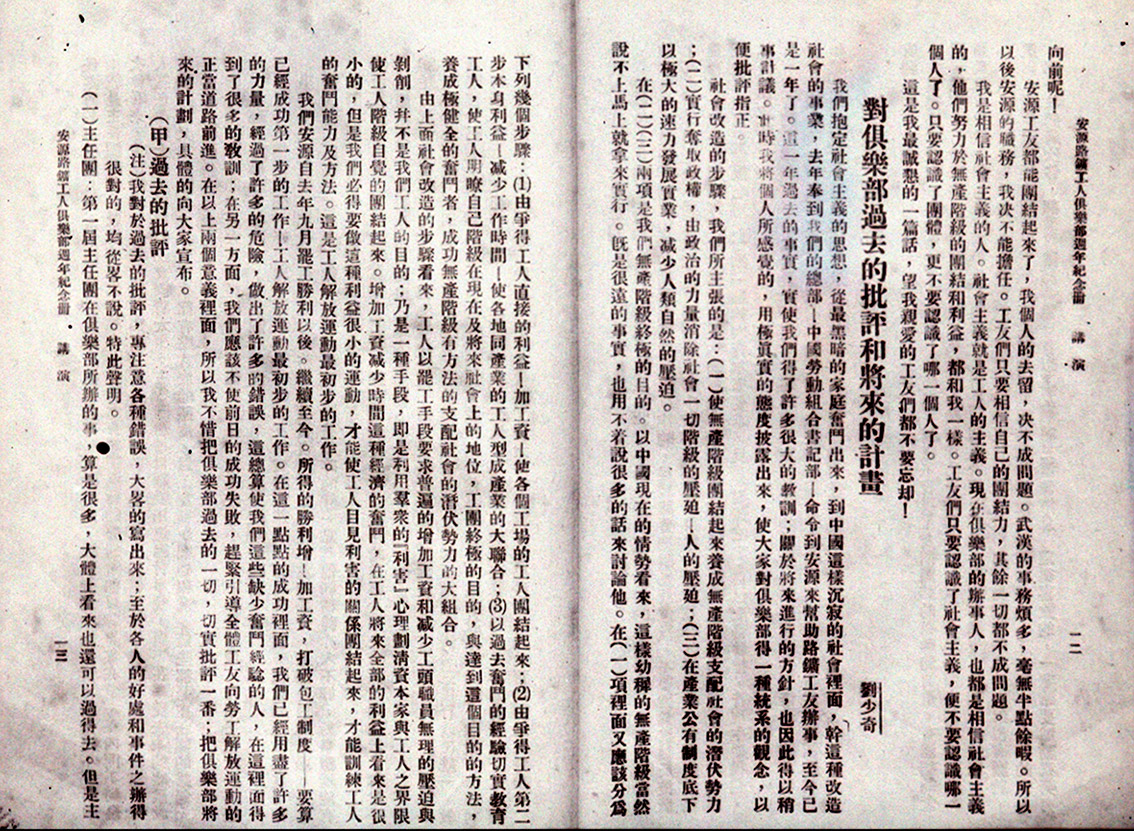 安源路鑛工人俱樂部週年紀念冊　講演
一二
向前呢！
安源工友都能團結起來了，我個人的去留，决不成問題。武漢的事務煩多，毫無半點餘暇。所以
以後安源的職務，我决不能擔任。工友們只要相信自己的團結力，其餘一切都不成問題。
我是相信社會主義的人。社會主義就是工人的主義。現在俱樂部的辦事人，也都是相信社會主義
的，他們努力於無產階級的團結和利益，都和我一樣。工友們只要認識了社會主義，便不要認識哪一
個人了。只要認識了團體，更不要認識了哪一個人了。
這是我最誠懇的一篇話，望我親愛的工友們都不要忘却！
對俱樂部過去的批評和將來的計畫
劉少奇
我們抱定社會主義的思想，從最黑暗的家庭奮鬥出來，到中國這樣沉寂的社會裡面，幹這種改造
社會的事業，去年奉到我們的總部—中國勞動組合書記部—命令到安源來幫助路鑛工友辦事，至今已
是一年了。這一年過去的事實，實使我們得了許多很大的敎訓；關於將來進行的方針，也因此得以稍
事計議。此時我將個人所感覺的，用極眞實的態度披露出來，使大家對俱樂部得一種統系的觀念，以
便批評指正。
社會改造的步驟，我們所主張的是：（一）使無產階級團結起來養成無產階級支配社會的潛伏勢力
；（二）實行奪取政權，由政治的力量消除社會一切階級的壓廹—人的壓廹；（三）在產業公有制度底下
以極大的速力發展實業，减少人類自然的壓迫。
在（二）（三）兩項是我們無產階級終極的目的。以中國現在的情勢看來，這樣幼穉的無產階級當然
說不上馬上就拿來實行。旣是很遠的事實，也用不着說很多的話來討論他。在（一）項裡面又應該分爲
下列幾個步驟：(1)由爭得工人直接的利益—加工資—使各個工塲的工人團結起來；(2)由爭得工人第二
步本身利益—减少工作時間—使各地同產業的工人型成產業的大聯合；(3)以過去奮鬥的經驗切實敎育
工人，使工人明瞭自己階級在現在及將來社會上的地位，工團終極的目的，與達到這個目的的方法，
養成極健全的奮鬥者，成功無產階級有方法的支配社會的潛伏勢力的大組合。
由上面社會改造的步驟看來，工人以罷工手段要求普遍的增加工資和减少工頭職員無理的壓迫與
剝削，幷不是我們工人的目的；乃是一種手段，即是利用羣衆的「利害」心理劃清資本家與工人之界限
使工人階級自覺的團結起來。增加工資减少時間這種經濟的奮鬥，在工人將來全部的利益上看來是很
小的，但是我們必得要做這種利益很小的運動，才能使工人目見利害的關係團結起來，才能訓練工人
的奮鬥能力及方法。這是工人解放運動最初步的工作。
我們安源自去年九月罷工勝利以後。繼續至今。所得的勝利增—加工資，打破包工制度——要算
已經成功第一步的工作—工人解放運動最初步的工作。在這一點點的成功裡面，我們已經用盡了許多
的力量，經過了許多的危險，做出了許多的錯誤，這總算使我們這些缺少奮鬥經騐的人，在這裡面得
到了很多的敎訓；在另一方面，我們應該不使前日的成功失敗，趕緊引導全體工友向勞工解放運動的
正當道路前進。在以上兩個意義裡面，所以我不惜把俱樂部過去的一切，切實批評一番；把俱樂部將
來的計劃，具體的向大家宣布。
（甲）過去的批評
（注）我對於過去的批評，專注意各種錯誤，大畧的寫出來；至於各人的好處和事件之辦得
很對的，均從畧不說。特此聲明。
（一）主任團：第一屆主任團在俱樂部所辦的事，算是很多，大體上看來也還可以過得去。但是主
安源路鑛工人俱樂部週年紀念冊　講演
一三